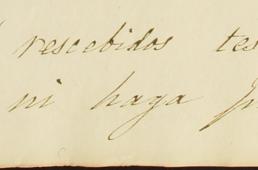 rescebidos tes
ni haga